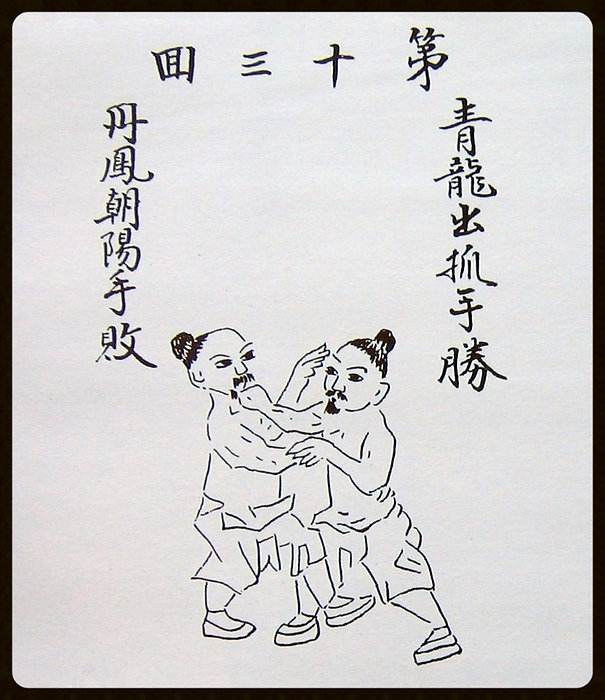 第十三回
青龍出抓手勝
丹鳳朝陽手敗